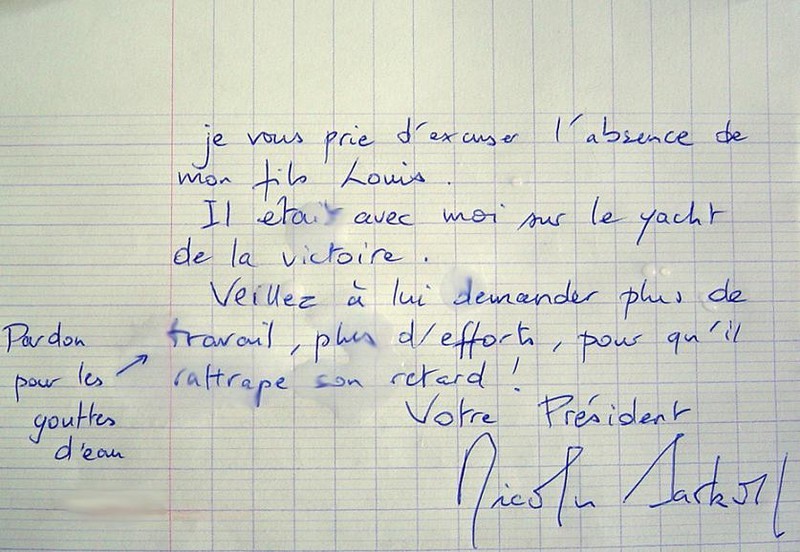 je vous prie d'excuser l'absence de
mon fils Louis.
Il était avec moi sur le yacht
de la victoire.
Veillez à lui demander plus de
travail, plus d'efforts, pour qu'il
rattrape son retard !
Votre Président
Nicolas Sarkozy
Pardon
pour les
gouttes
d'eau